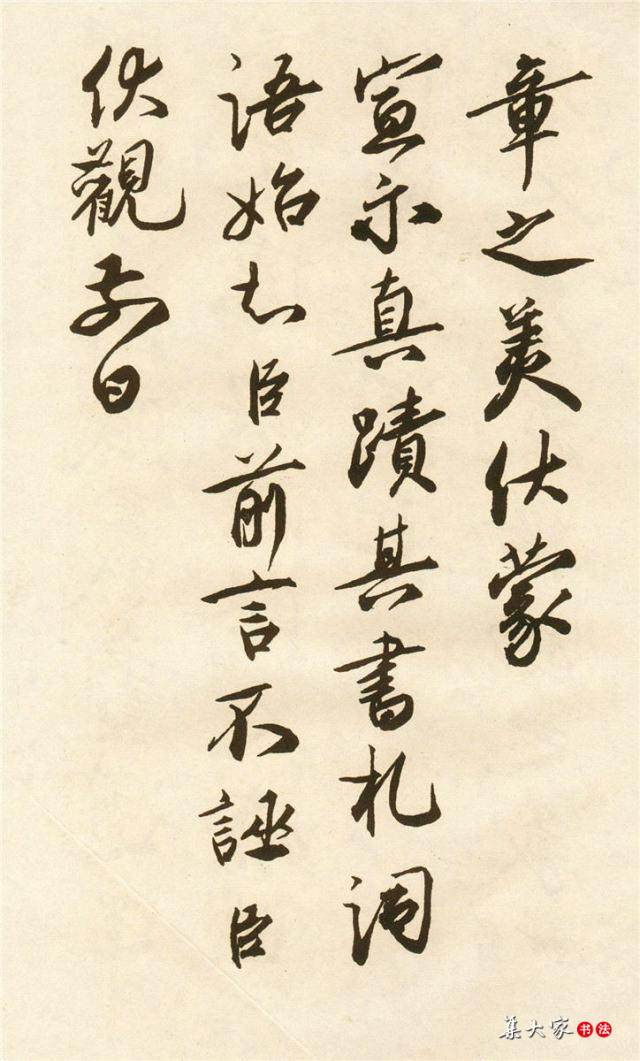 章之美伏蒙
宣示真蹟其書札詞
語始知臣前言不誣臣
伏觀日
集大家書法